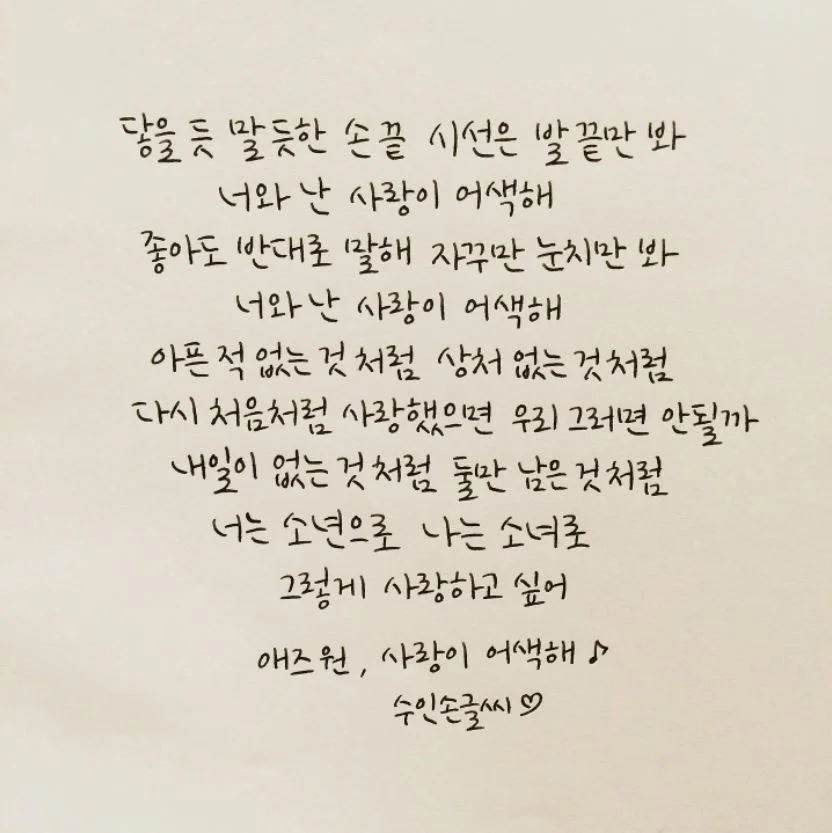 닿을 듯 말 듯한 손 끝 시선은 발 끝만 봐
너와 난 사랑이 어색해
좋아도 반대로 말해 자꾸만 눈치만 봐
너와 난 사랑이 어색해
아픈 적 없는 것처럼 상처 없는 것처럼
다시 처음처럼 사랑했으면 우리 그러면 안될까
내일이 없는 것처럼 둘만 남은 것처럼
너는 소년으로 나는 소녀로
그렇게 사랑하고 싶어
애즈원, 사랑이 어색해 ♪
수인손글씨 ♡